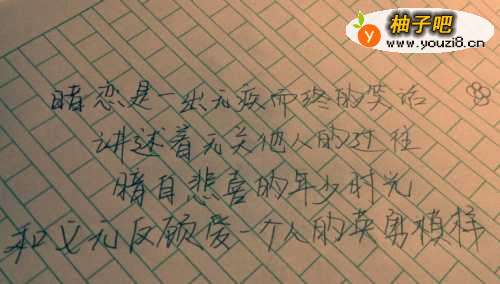 柚子吧
www.youzi8.cn
暗恋是一出无疾而终的笑话
讲述着无关他人的过往
暗自悲喜的年少时光
和义无反顾爱一个人的英勇模样